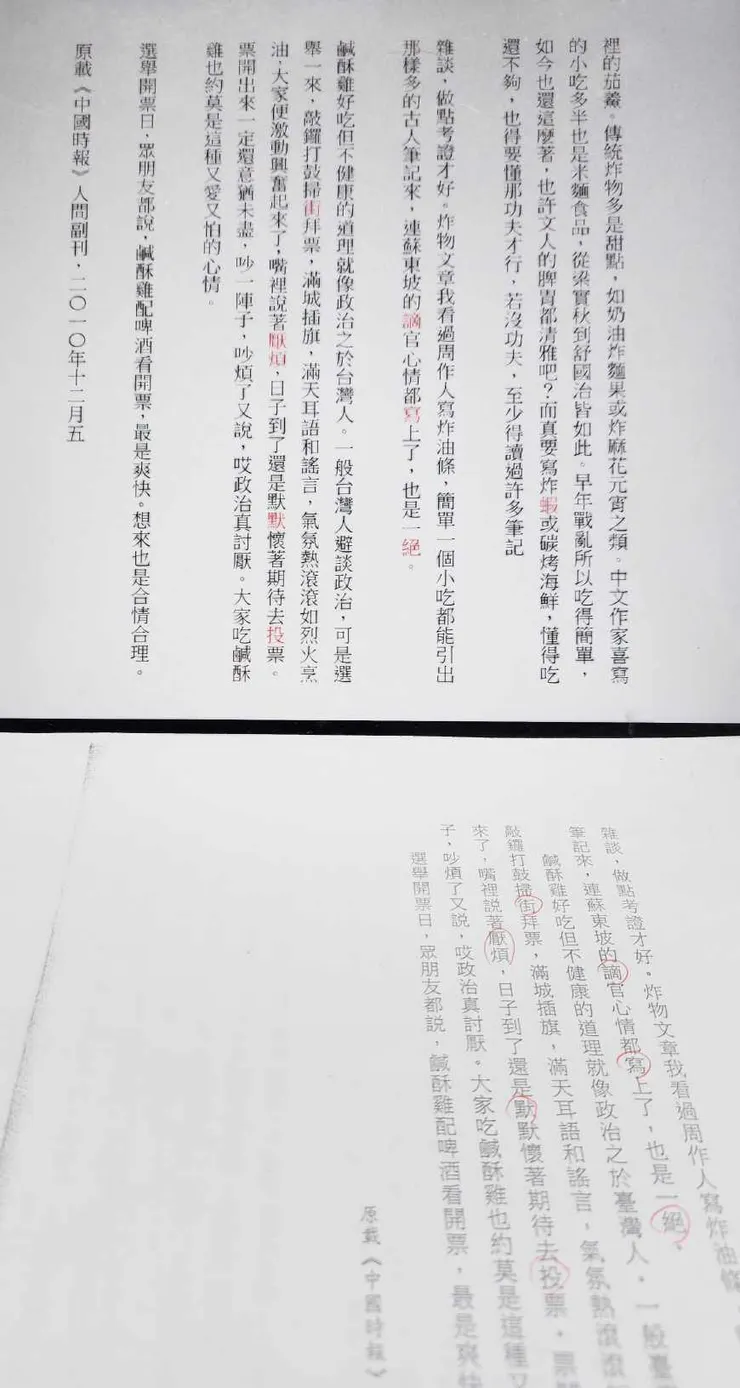 裡的茄鲞。傳統炸物多是甜點，如奶油炸麵果或炸麻花元宵之類。中文作家喜寫
的小吃多半也是米麵食品，從梁實秋到舒國治皆如此。早年戰亂所以吃得簡單，
如今也還這麼著，也許文人的脾胃都清雅吧？而真要寫炸蝦或碳烤海鮮，懂得吃
還不夠，也得要懂那功夫才行，若沒功夫，至少得讀過許多筆記
雜談，做點考證才好。炸物文章我看過周作人寫炸油條，簡單一個小吃都能引出
那樣多的古人筆記來，連蘇東坡的謫官心情都寫上了，也是一絕。
鹹酥雞好吃但不健康的道理就像政治之於台灣人。一般台灣人避談政治，可是選
舉一來，敲鑼打鼓掃街拜票，滿城插旗，滿天耳語和謠言，氣氛熱滾滾如烈火烹
油，大家便激動興奮起來了，嘴裡說著厭煩，日子到了還是默默懷著期待去投票。
票開出來一定還意猶未盡，吵一陣子，吵煩了又說，哎政治真討厭。大家吃鹹酥
雞也約莫是這種又愛又怕的心情。
選舉開票日，眾朋友都說，鹹酥雞配啤酒看開票，最是爽快。想來也是合情合理。
原載《中國時報》人間副刊，二〇一〇年十二月五
雜談，做點考證才好。炸物文章我看過周作人寫炸油條，
筆記來，連蘇東坡的謫官心情都寫上了，也是一絕。
鹹酥雞好吃但不健康的道理就像政治之於臺灣人。一般臺
敲鑼打鼓掃街拜票，滿城插旗，滿天耳語和謠言，氣氛熱滾滾
來了，嘴裡說著厭煩，日子到了還是默默懷著期待去投票。票
子，吵煩了又說，哎政治真討厭。大家吃鹹酥雞也約莫是這種又
選舉開票日，眾朋友都說，鹹酥雞配啤酒看開票，最是爽快
原載《中國時報》